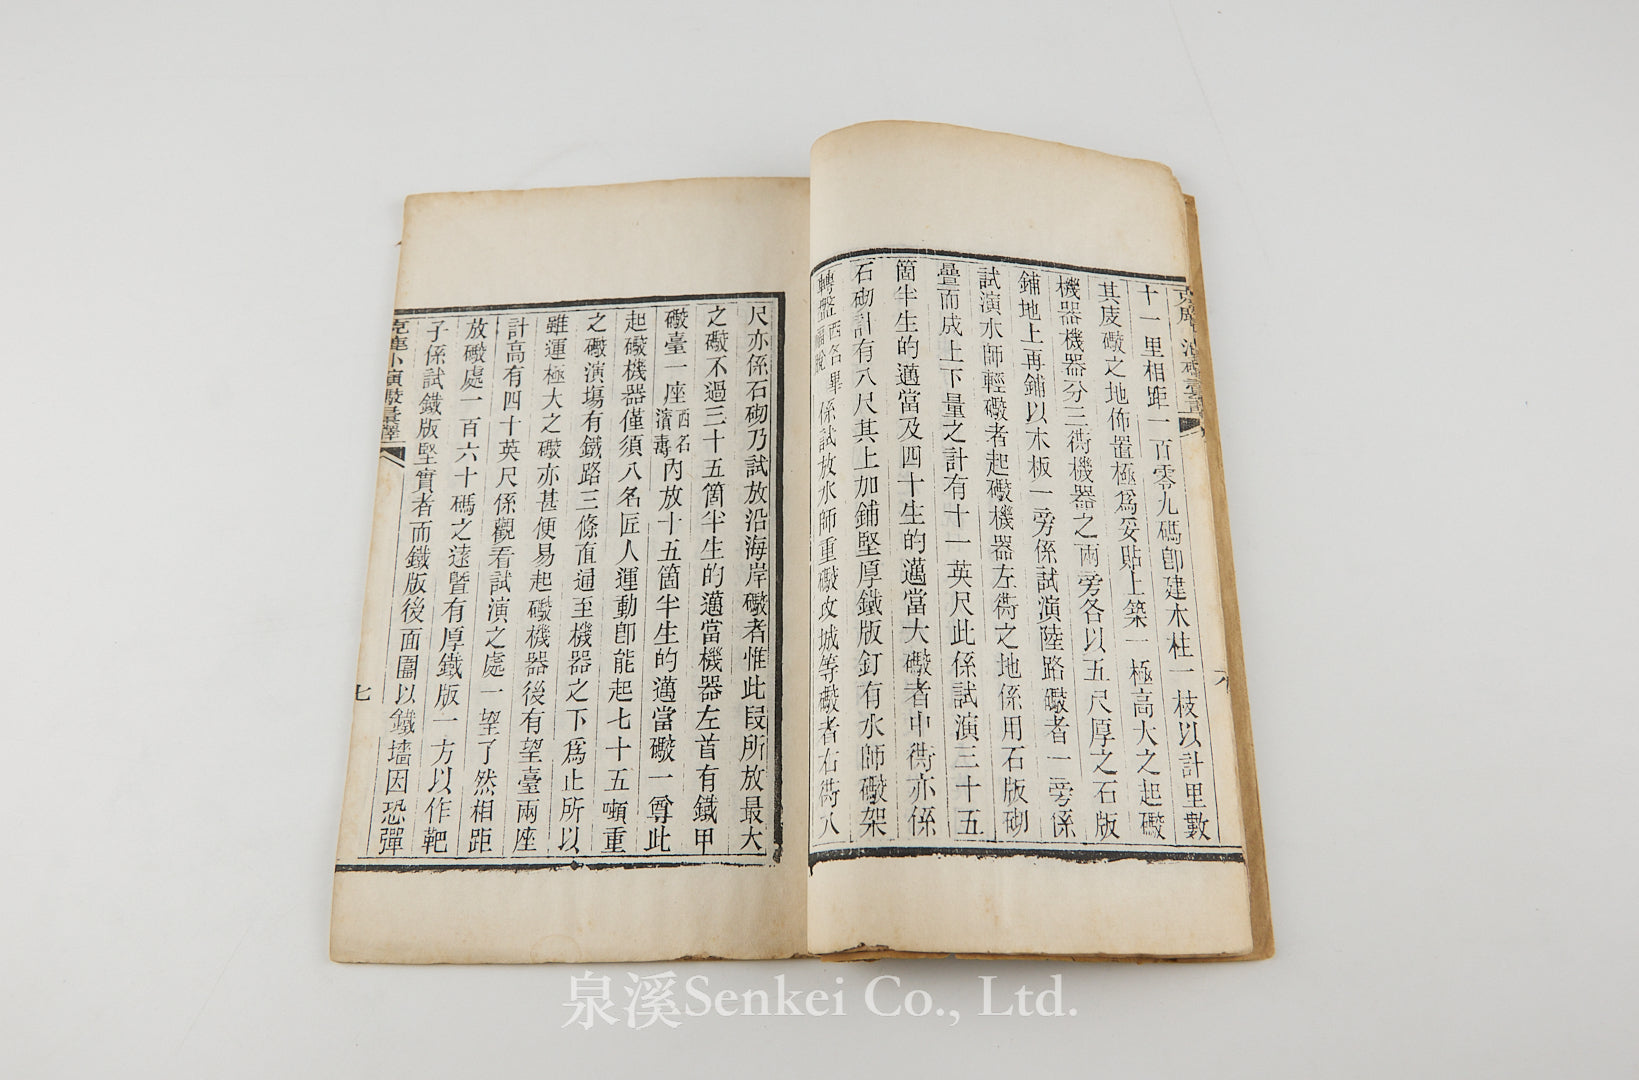 十一里相距一百零九碼卽建木柱一枝以計里數
其度礮之地佈置極爲妥貼上築一極高大之起礮
機器機器分三衖機器之兩旁各以五尺厚之石版
鋪地上再鋪以木板一旁係試演陸路礮者一旁係
試演水師輕礮者起礮機器左衖之地係用石版砌
疊而成上下量之計有十一英尺此係試演三十五
箇半生的邁當及四十生的邁當大礮者中衖亦係
石砌計有八尺其上加鋪堅厚鐵版釘有水師礮架
轉盤西名畢福脫係試放水師重礮攻城等礮者右衖八
尺亦係石砌乃試放沿海岸礮者惟此段所放最大
之礮不過三十五箇半生的邁當機器左首有鐵甲
礮臺一座西名濱毒內放十五箇半生的邁當礮一尊此
起礮機器僅須八名匠人運動卽能起七十五噸重
之礮演塲有鐵路三條直通至機器之下爲止所以
雖運極大之礮亦甚便易起礮機器後有望臺兩座
計高有四十英尺係觀看試演之處一望了然相距
放礮處一百六十碼之遠暨有厚鐵版一方以作靶
子係試鐵版堅實者而鐵版後面圍以鐵墻因恐彈
克鹿卜演礮彙譯
七
泉溪Senkei Co., Ltd.